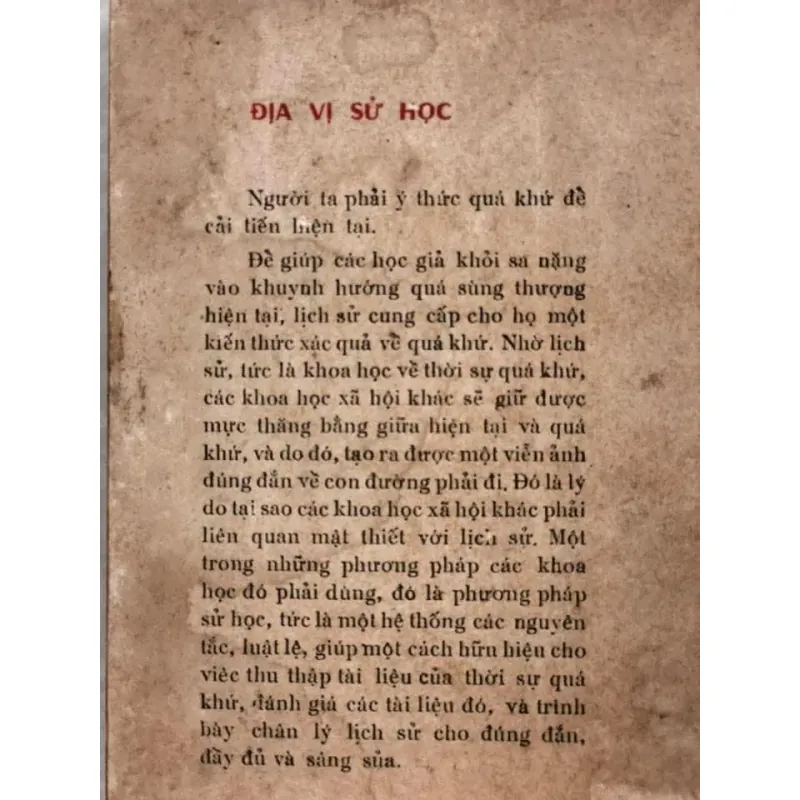 ĐỊA VỊ SỬ HỌC
Người ta phải ý thức quá khứ để
cải tiến hiện tại.
Để giúp các học giả khỏi sa nặng
vào khuynh hướng quá sùng thượng
hiện tại, lịch sử cung cấp cho họ một
kiến thức xác quả về quá khứ. Nhờ lịch
sử, tức là khoa học về thời sự quá khứ,
các khoa học xã hội khác sẽ giữ được
mực thăng bằng giữa hiện tại và quá
khứ, và do đó, tạo ra được một viễn ảnh
đúng đắn về con đường phải đi. Đó là lý
do tại sao các khoa học xã hội khác phải
liên quan mật thiết với lịch sử. Một
trong những phương pháp các khoa
học đó phải dùng, đó là phương pháp
sử học, tức là một hệ thống các nguyên
tắc, luật lệ, giúp một cách hữu hiệu cho
việc thu thập tài liệu của thời sự quá
khứ, đánh giá các tài liệu đó, và trình
bày chân lý lịch sử cho đúng đắn,
đầy đủ và sáng sủa.